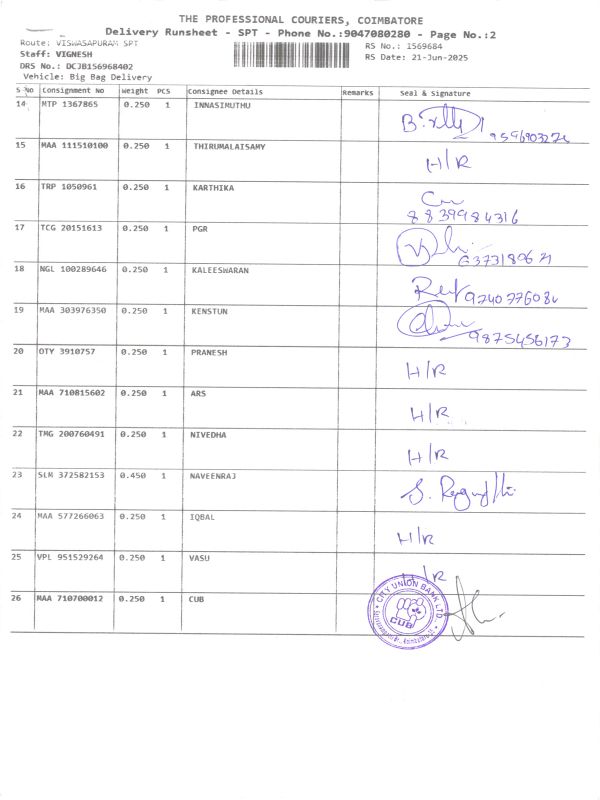 THE PROFESSIONAL COURIERS, COIMBATORE
Delivery Runsheet - SPT - Phone No.:9047080280 - Page No.:2
Route: VISWASAPURAM SPT
RS No.: 1569684
Staff: VIGNESH
RS Date: 21-Jun-2025
DRS No.: DCJB156968402
Vehicle: Big Bag Delivery
S No Consignment No Weight PCS Consignee Details Remarks Seal & Signature
14 MTP 1367865 0.250 1 INNASIMUTHU
15 MAA 111510100 0.250 1 THIRUMALAISAMY H/R
16 TRP 1050961 0.250 1 KARTHIKA
8839984316
17 TCG 20151613 0.250 1 PGR
18 NGL 100289646 0.250 1 KALEESWARAN
19 MAA 303976350 0.250 1 KENSTUN
9875456173
20 OTY 3910757 0.250 1 PRANESH H/R
21 MAA 710815602 0.250 1 ARS H/R
22 TMG 200760491 0.250 1 NIVEDHA H/R
23 SLM 372582153 0.450 1 NAVEENRAJ
24 MAA 577266063 0.250 1 IQBAL H/R
25 VPL 951529264 0.250 1 VASU H/R
26 MAA 710700012 0.250 1 CUB
CITY UNION BANK LTD.
CUB